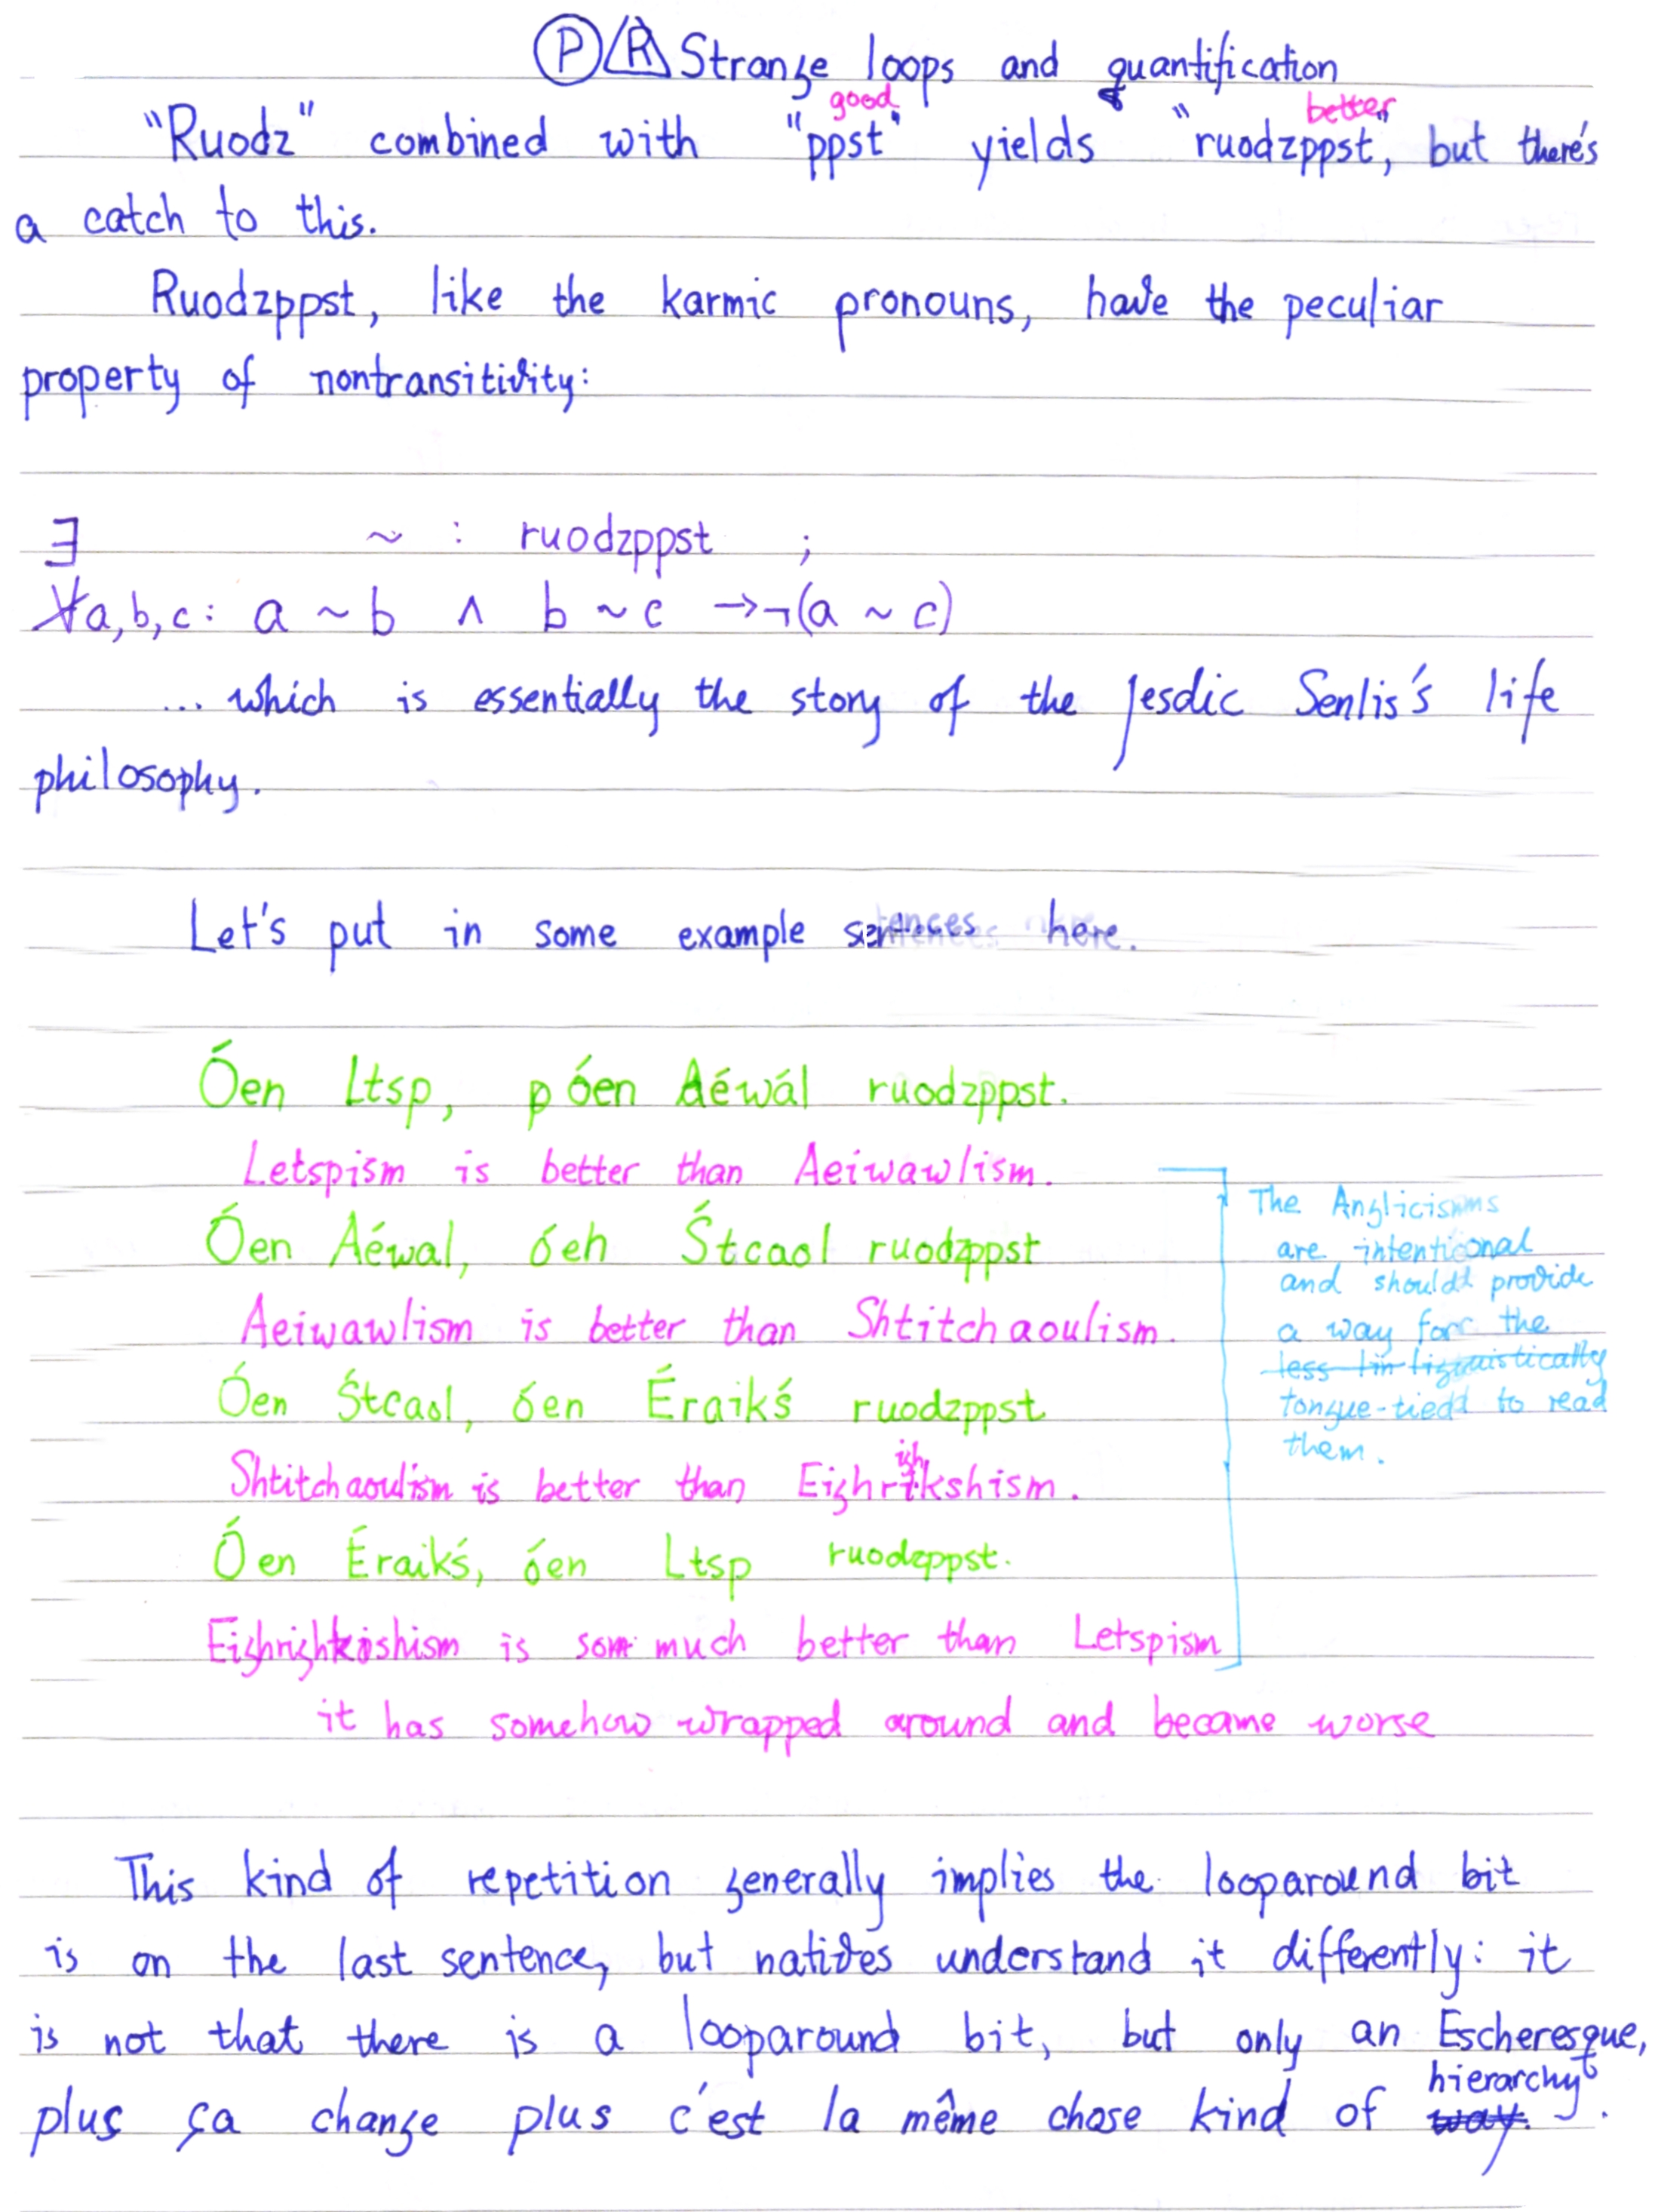 Ⓟ R Strange loops and quantification
good better
"Ruodz" combined with "ppst" yields "ruodzppst", but there's
a catch to this.
Ruodzppst, like the karmic pronouns, have the peculiar
property of nontransitivity:
∃ ~ : ruodzppst ;
∀a,b,c: a ~ b ∧ b ~ c →¬(a ~ c)
... which is essentially the story of the Jesdic Senlis's life
philosophy.
Let's put in some example sentences here.
Óen Ltsp, p óen Aéwál ruodzppst.
Letspism is better than Aeiwawlism.
Óen Aéwal, óeh Śtcaol ruodzppst
Aeiwawlism is better than Shtitchaoulism.
Óen Śtcaol, óen Éraikś ruodzppst
Shtitchaoulism is better than Eighrishkshism.
Óen Éraikś, óen Ltsp ruodzppst.
Eighrishkishism is som much better than Letspism
it has somehow wrapped around and became worse
The Anglicisms
are intentional
and should provide
a way for the
less linguistically
tongue-tied to read
them.
This kind of repetition generally implies the looparound bit
is on the last sentence, but natives understand it differently: it
is not that there is a looparound bit, but only an Escheresque,
plus ça change plus c'est la même chose kind of way. hierarchy.